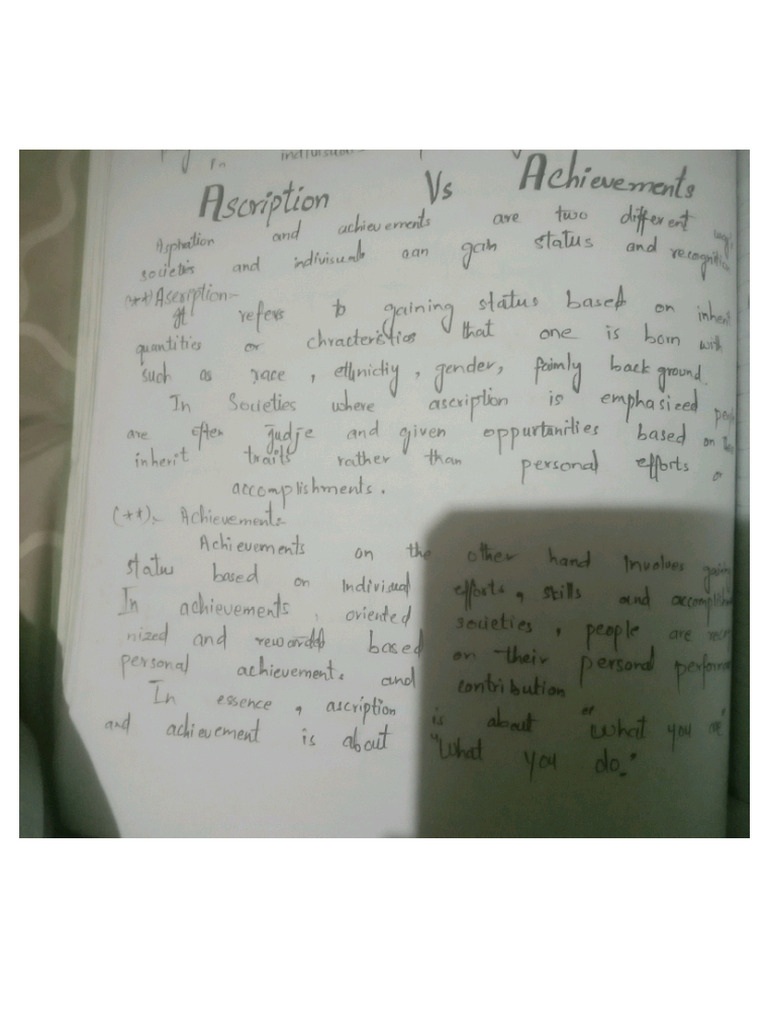 individual
Ascription Vs Achievements
Asphation and achievements are two different ways
societies and indivisuals can gain status and recognition
(**) Ascription:-
It refers to gaining status based on inherit
quantities or chracteristics that one is born with
such as race, ethnictiy, gender, faimly back ground.
In Societies where ascription is emphasized people
are often judje and given oppurtunities based on
inherit traits rather than personal efforts or
accomplishments.
(**):- Achievements:-
Achievements on the other hand Involves gaining
status based on Indivisual efforts, skills and accomplish
In achievements, oriented societies, people are recog
nized and rewarded based on their personal performan
personal achievements and contribution
In essence, ascription is about "What you are"
and achievement is about "What you do."